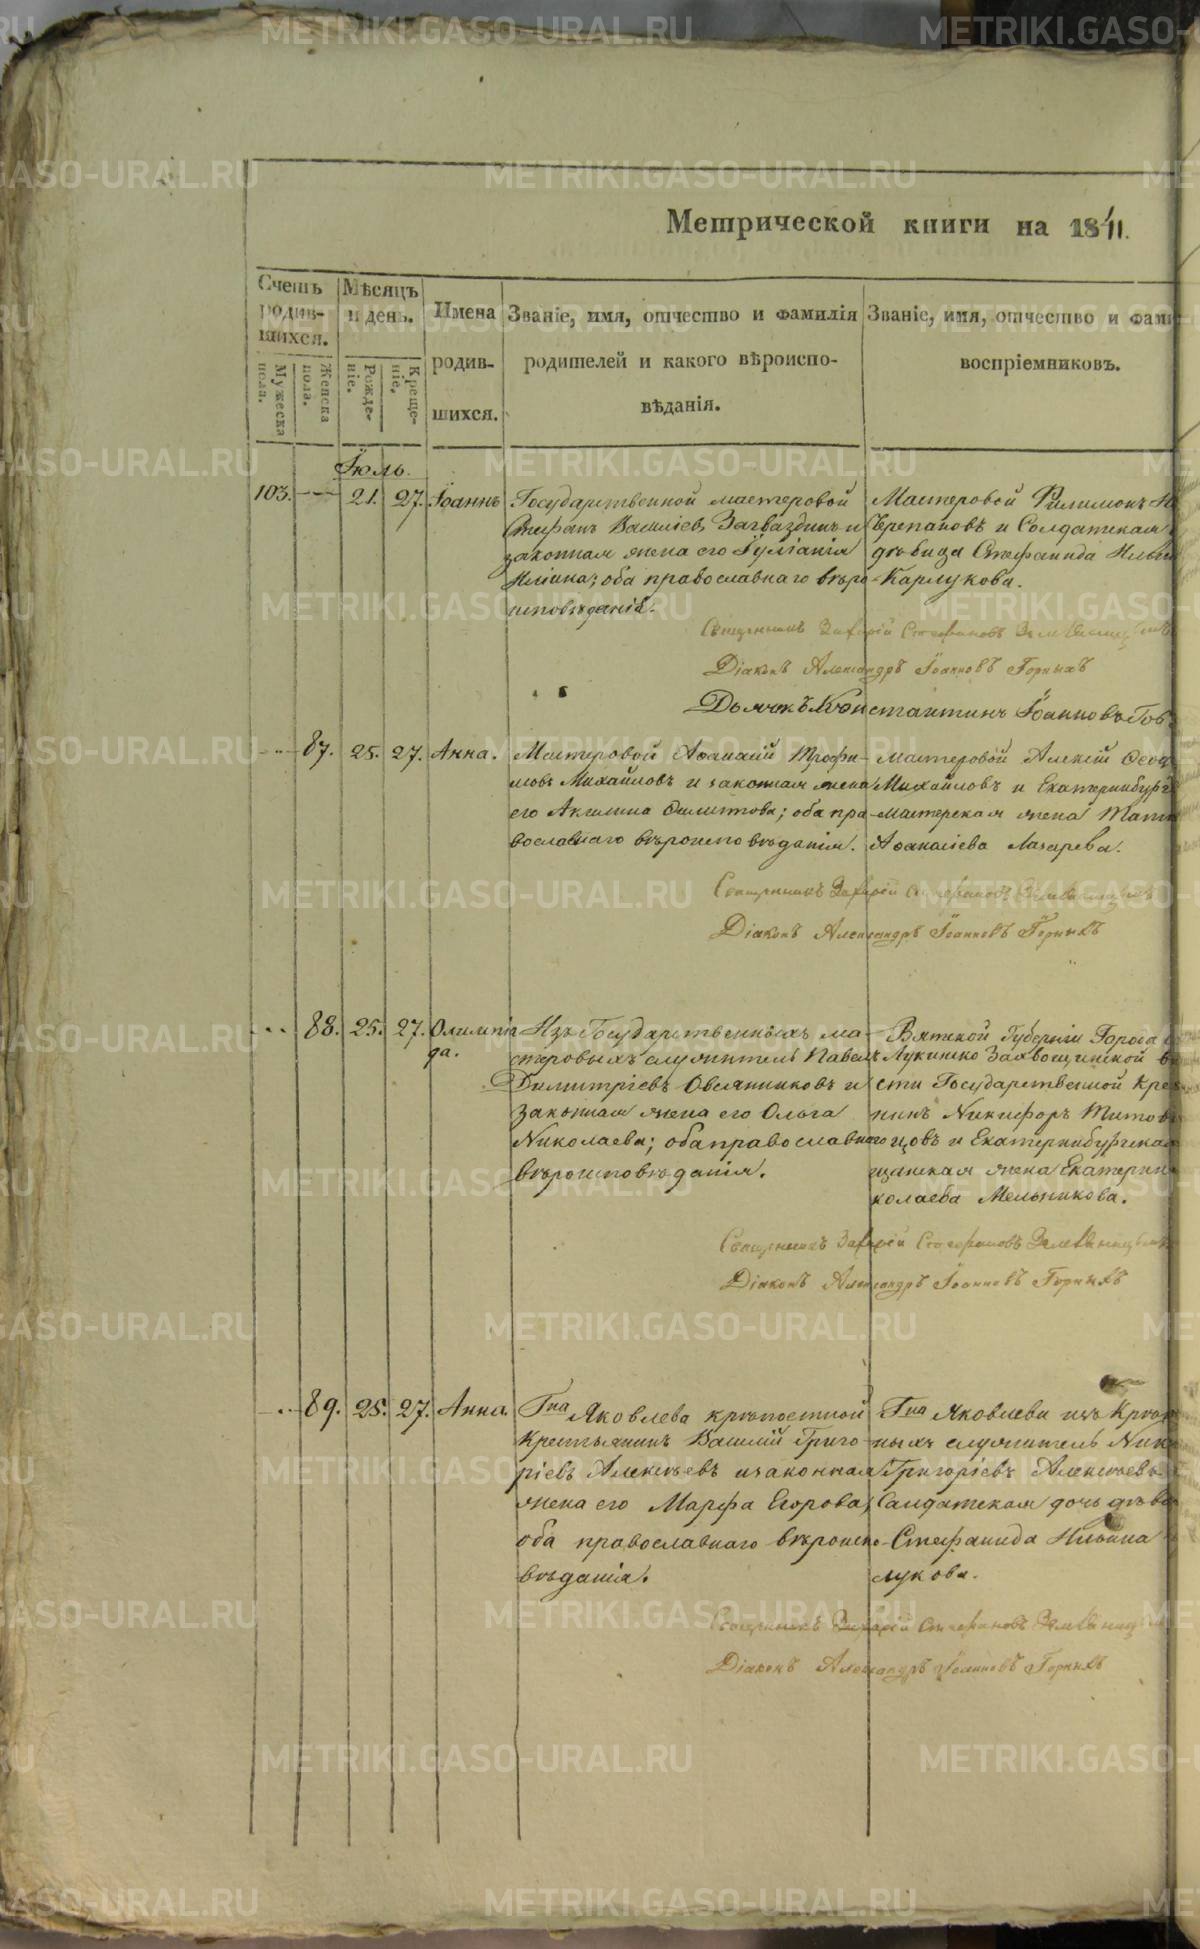 Метрической книги на 1841.
Счетъ родившихся.
Мужеска пола.
Женска пола.
Мѣсяцъ и день.
Рожденіе.
Крещеніе.
Имена родившихся.
Званіе, имя, отчество и фамилія родителей и какого вѣроисповѣданія.
Званіе, имя, отчество и фами
воспріемниковъ.
Іюль.
103. 21. 27. Іоаннъ
Государственной мастеровой
Стефанъ Васильевъ Загваздинъ и
законная жена его Іуліанія
оба православнаго вѣро-
исповѣданія.
Мастеровой Филимонъ
Черепановъ и Солдатская
дѣвица Стефанида Ильи
Карлукова.
Священникъ Захарій Стефановъ
Діаконъ Александръ Іоанновъ Горныхъ
Дьячекъ Константинъ Іоанновъ
87. 25. 27. Анна.
Мастеровой Аѳанасій Трофи-
мовъ Михайловъ и законная жена
его Акилина Филиппова; оба пра-
вославнаго вѣроисповѣданія.
Мастеровой Алексій
Михайловъ и Екатеринбург
мастерская жена
Аѳанасіева Лазарева.
Священникъ Захарій Стефановъ
Діаконъ Александръ Іоанновъ Горныхъ
88. 25. 27. Олимпіа
да.
Изъ Государственныхъ ма-
стеровыхъ служитель Павелъ
Димитріевъ Овсянниковъ и
законная жена его Ольга
Николаева; оба православнаго
вѣроисповѣданія.
Вятской Губерніи Города
Государственной Кре
нинъ Никифоръ Титовъ
цовъ и Екатеринбургская
щанская жена Екатерин
колаева Мельникова.
Священникъ Захарій Стефановъ
Діаконъ Александръ Іоанновъ Горныхъ
89. 25. 27. Анна.
Гна Яковлева крѣпостной
Крестьянинъ Василій Григо-
ріевъ Алексѣевъ и законная
жена его Марфа Егорова;
оба православнаго вѣроиспо-
вѣданія.
Гна Яковлева изъ Крѣпо
ныхъ служитель Ник
Григоріевъ Алексѣевъ
Салдатская дочь дѣви
Стефанида Ильина
лукова.
Священникъ Захарій Стефановъ
Діаконъ Александръ Іоанновъ Горныхъ
METRIKI.GASO-URAL.RU